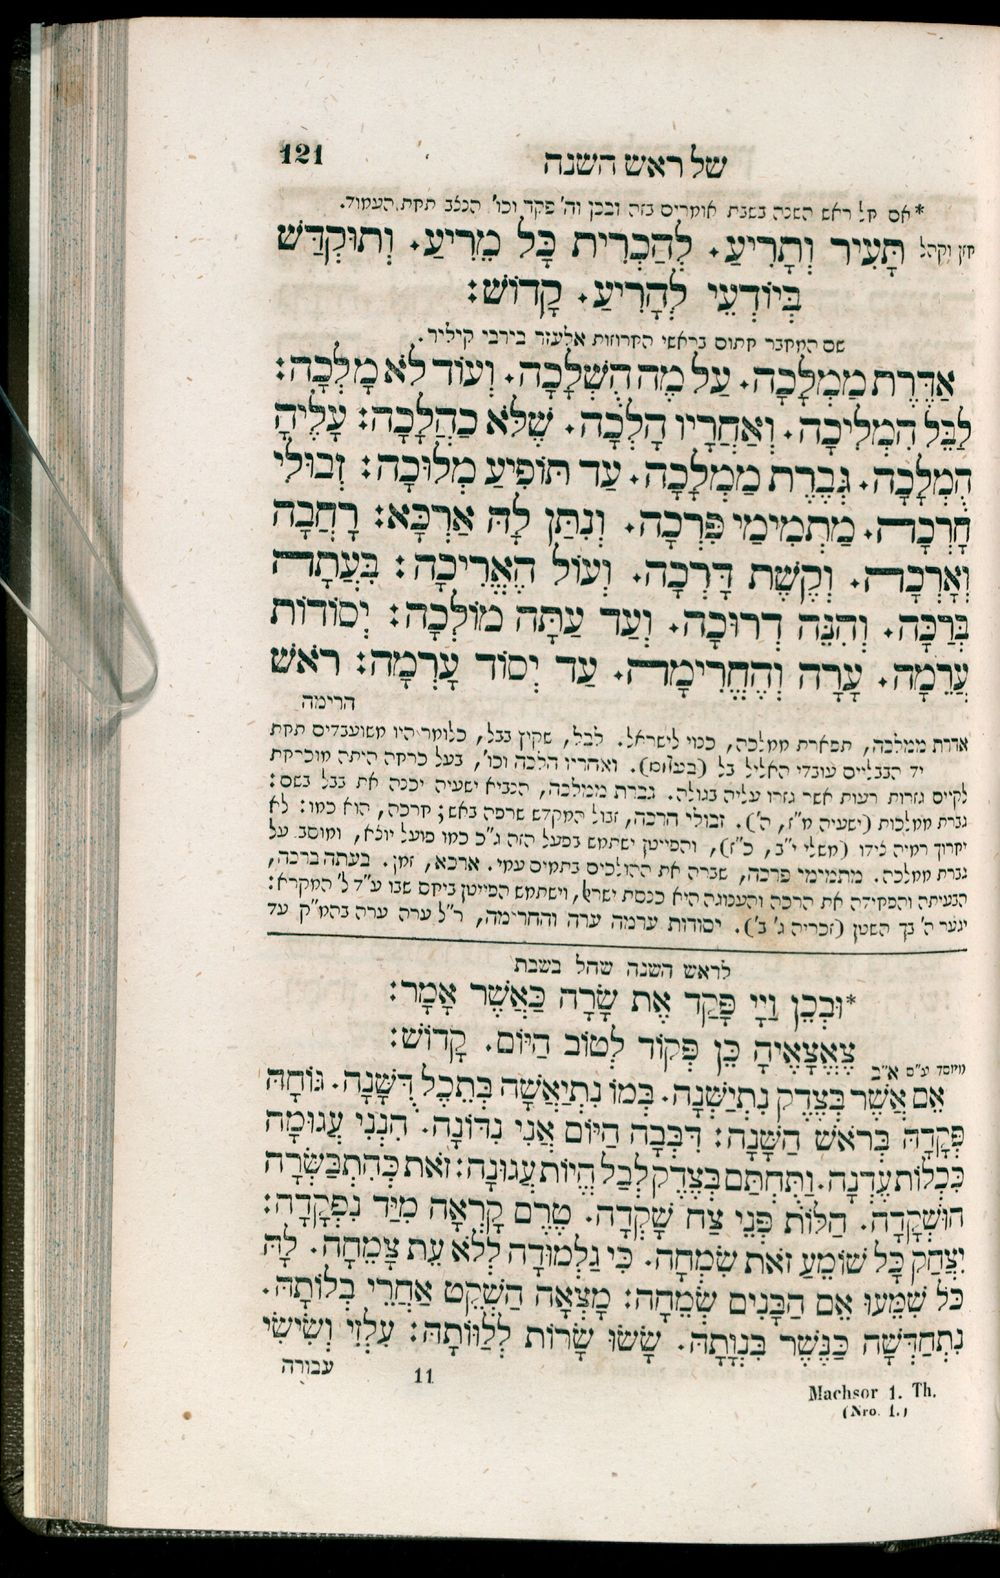 121
של ראש השנה
*אם חל ראש השנה בשבת אומרים בזה ובכן וה' פקד וכו' הנכתב תחת העמוד.
חזן וקהל תָּעִיר וְתָרִיעַ. לְהַכְרִית כָּל מֵרִיעַ. וְתוּקְדַּשׁ
בְּיוֹדְעֵי לְהָרִיעַ. קָדוֹשׁ:
שם המחבר חתום בראשי החרוזות אלעזר בירבי קיליר.
אַדֶּרֶת מַמְלָכָה. עַל מֶה הֻשְׁלָכָה. וְעוֹד לֹא מָלְכָה:
לַבֵּל הִמְלִיכָה. וְאַחֲרָיו הָלְכָה. שֶׁלֹּא כַהֲלָכָה: עָלֶיהָ
הֻמְלָכָה. גְּבֶרֶת מַמְלָכָה. עַד תּוֹפִיעַ מְלוּכָה: זְבוּלִי
חָרְכָה. מִתְמִימַי פָּרְכָה. וְנִתַּן לָהּ אַרְכָּא: רָחֲבָה
וְאָרְכָה. וְקֶשֶׁת דָּרְכָה. וְעוֹל הֶאֱרִיכָה: בִּעֲתָה
בְּרַכָּה. וְהִנֵּה דְרוּכָה. וְעַד עַתָּה מוֹלְכָה: יְסוֹדוֹת
עֲרֵמָה. עָרָה וְהֶחֱרִימָה. עַד יְסוֹד עָרְמָה: רֹאשׁ
הרימה
אדרת ממלכה, תפארת ממלכה, כנוי לישראל. לבל, שקוץ בבל, כלומר היו משועבדים תחת
יד הבבליים עובדי האליל בל (בעלום). ואחריו הלכה וכו', בעל כרחה היתה מוכרחת
לקיים גזרות רעות אשר גזרו עליה בגולה. גברת ממלכה, הנביא ישעיה יכנה את בבל בשם:
גברת ממלכות (ישעיה מ"ז, ה'). זבולי חרכה, זבול המקדש שרפה באש; חרכה, הוא כמו: לא
יחרוך רמיה צידו (משלי י"ב, כ"ז), והפייטן ישתמש בפעל הזה ג"כ כמו פועל יוצא, ומוסב על
גברת ממלכה. מתמימי פרכה, שברה את ההולכים בתמים עמי. ארכא, זמן. בעתה ברכה,
הבעיתה והפחידה את הרכה והענוגה היא כנסת ישראל, וישתמש הפייטן ביחס שבו ע"ד ל' המקרא:
יגער ה' בך השטן (זכריה ג' ב'). יסודות ערמה ערה והחרימה, ר"ל ערה ערה בהמ"ק עד
לראש השנה שחל בשבת
*וּבְכֵן וַיְיָ פָּקַד אֶת שָׂרָה כַּאֲשֶׁר אָמָר:
צֶאֱצָאֶיהָ כֵּן פְּקוֹד לְטוֹב הַיּוֹם. קָדוֹשׁ:
מיוסד ע"פ א"ב
אֵם אֲשֶׁר בְּצֶדֶק נִתְיַשְּׁנָה. בְּמוֹ נִתְיַאֲשָׁה בְּתֵכֶל דֻּשָּׁנָה. גּוֹחָהּ
פְּקָדָהּ בְּרֹאשׁ הַשָּׁנָה: דִּבְּבָה הַיּוֹם אֲנִי נִדּוֹנָה. הִנְנִי עֲגוּמָה
כִּכְלוֹת עֶדְנָה. וַתֵּחְתַּם בְּצֶדֶק לְבַל הֱיוֹת עֲגוּנָה: זֹאת כְּהִתְבַּשְּׂרָה
הוּשְׁקָדָה. הַלּוֹת פְּנֵי צַח שָׁקְדָה. טֶרֶם קָרְאָה מִיַּד נִפְקָדָה:
יִצְחַק כָּל שׁוֹמֵעַ זֹאת שִׂמְחָה. כִּי גַלְמוּדָה לְלֹא עֵת צָמֵחָה. לָהּ
כֹּל שִׁמְּעוּ אֵם הַבָּנִים שְׂמֵחָה: מָצְאָה הַשְׁקֵט אַחֲרֵי בְלוֹתָהּ.
נִתְחַדְּשָׁה כַּנֶּשֶׁר בִּנְוָתָהּ. שָׂשׂוּ שָׂרוֹת לְלַוּוֹתָהּ: עִלְזִי וְשִׂישִׂי
עבורה
11
Machsor 1. Th.
(Nro. 1.)